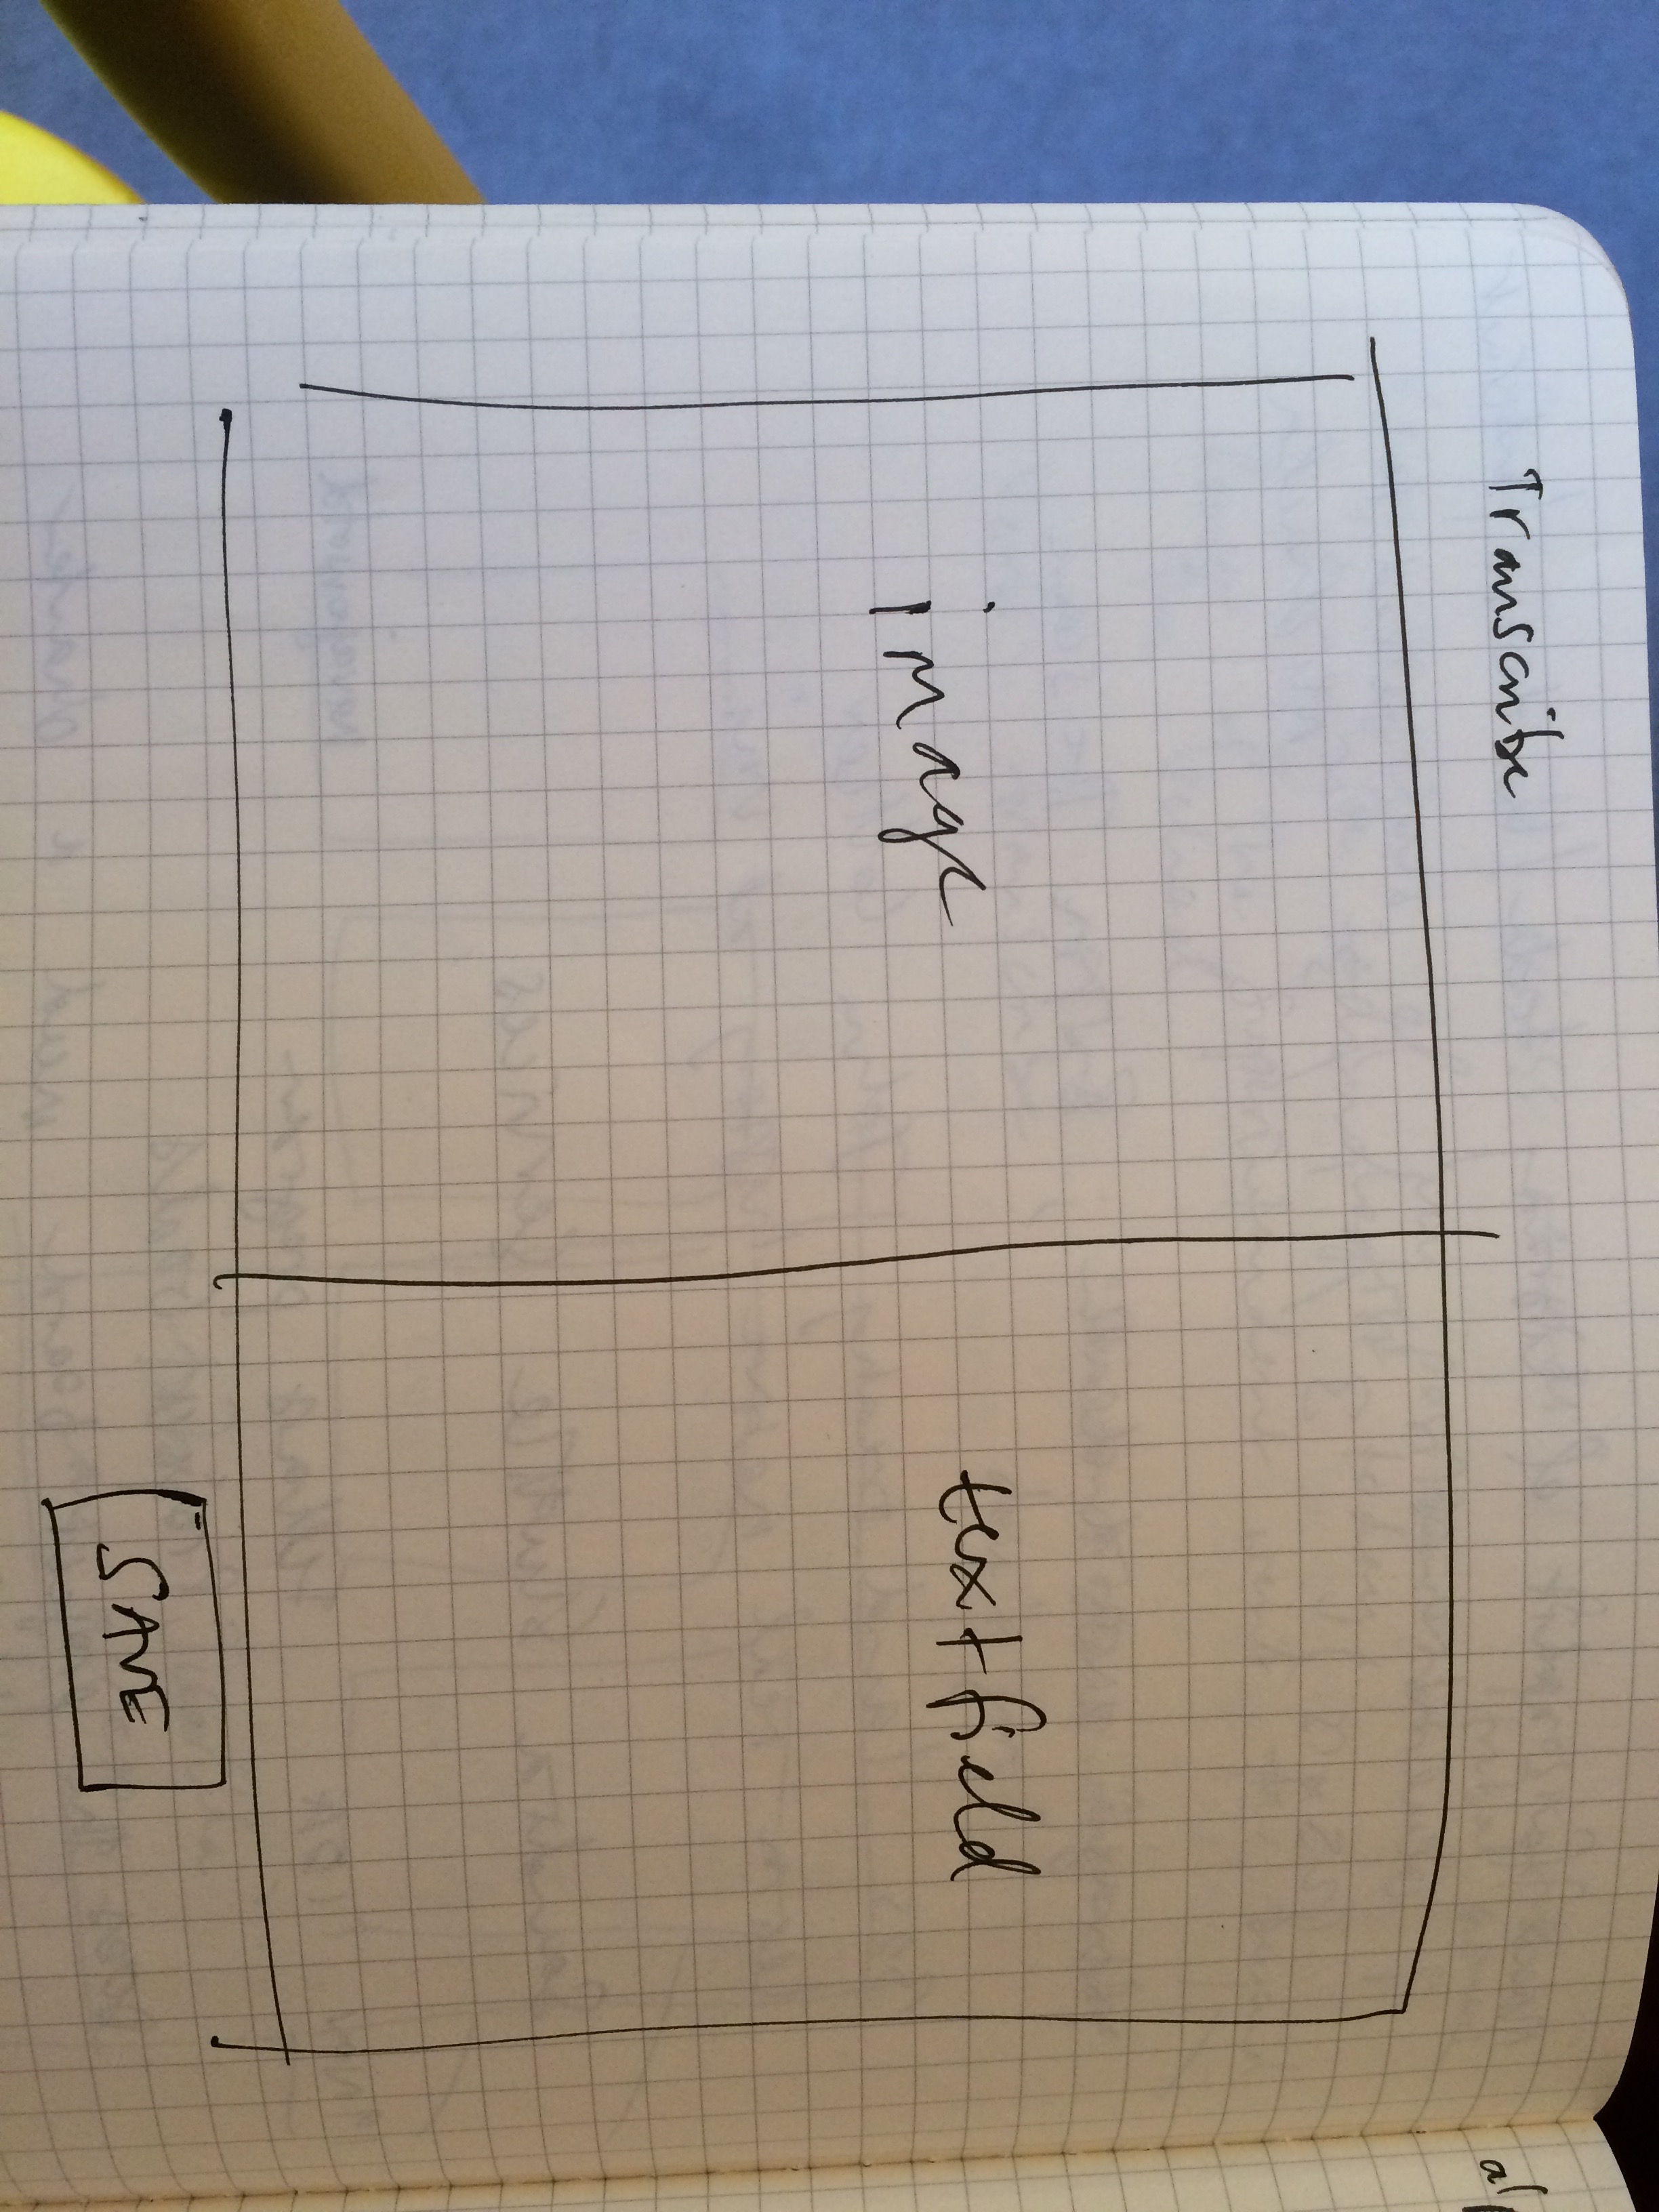 Transcribe
image
text field
SAVE